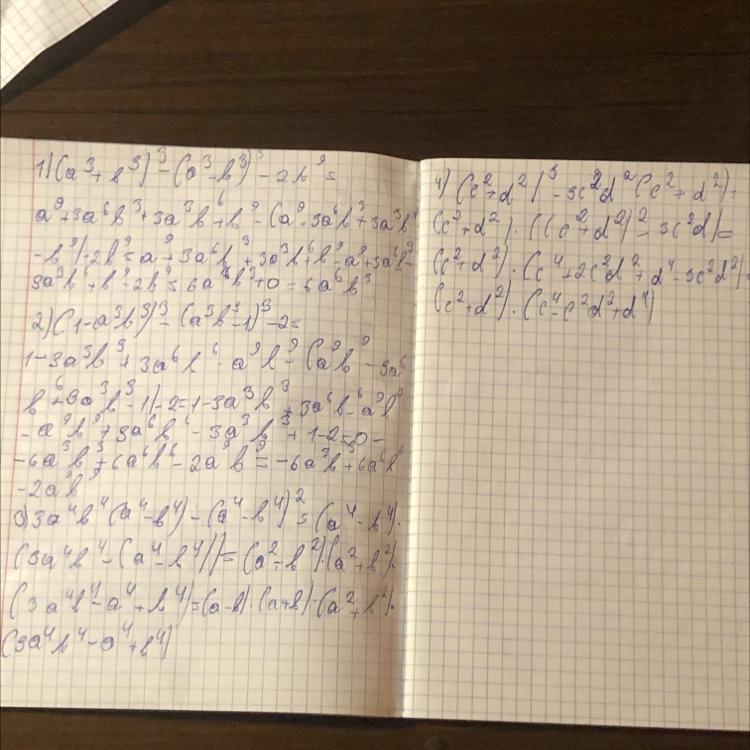 1) (a³+b³)³-(a³-b³)³-2b⁹=
a⁹+3a⁶b³+3a³b⁶+b⁹-(a⁹-3a⁶b³+3a³b⁶
-b⁹)-2b⁹=a⁹+3a⁶b³+3a³b⁶+b⁹-a⁹+3a⁶b³-
3a³b⁶+b⁹-2b⁹=6a⁶b³+0=6a⁶b³
2) (1-a³b³)³-(a³b³-1)³-2=
1-3a³b³+3a⁶b⁶-a⁹b⁹-(a⁹b⁹-3a⁶
b⁶+3a³b³-1)-2=1-3a³b³+3a⁶b⁶-a⁹b⁹
-a⁹b⁹+3a⁶b⁶-3a³b³+1-2=0-
-6a³b³+6a⁶b⁶-2a⁹b⁹=-6a³b³+6a⁶b⁶
-2a⁹b⁹
3) 3a⁴b⁴(a⁴-b⁴)-(a⁴-b⁴)²=(a⁴-b⁴)·
(3a⁴b⁴-(a⁴-b⁴))=(a²-b²)·(a²+b²)·
(3a⁴b⁴-a⁴+b⁴)=(a-b)·(a+b)·(a²+b²)·
(3a⁴b⁴-a⁴+b⁴)
4) (c²+d²)³-3c²d²(c²+d²)=
(c²+d²)·((c²+d²)²-3c²d)=
(c²+d²)·(c⁴+2c²d²+d⁴-3c²d²)=
(c²+d²)·(c⁴-c²d²+d⁴)